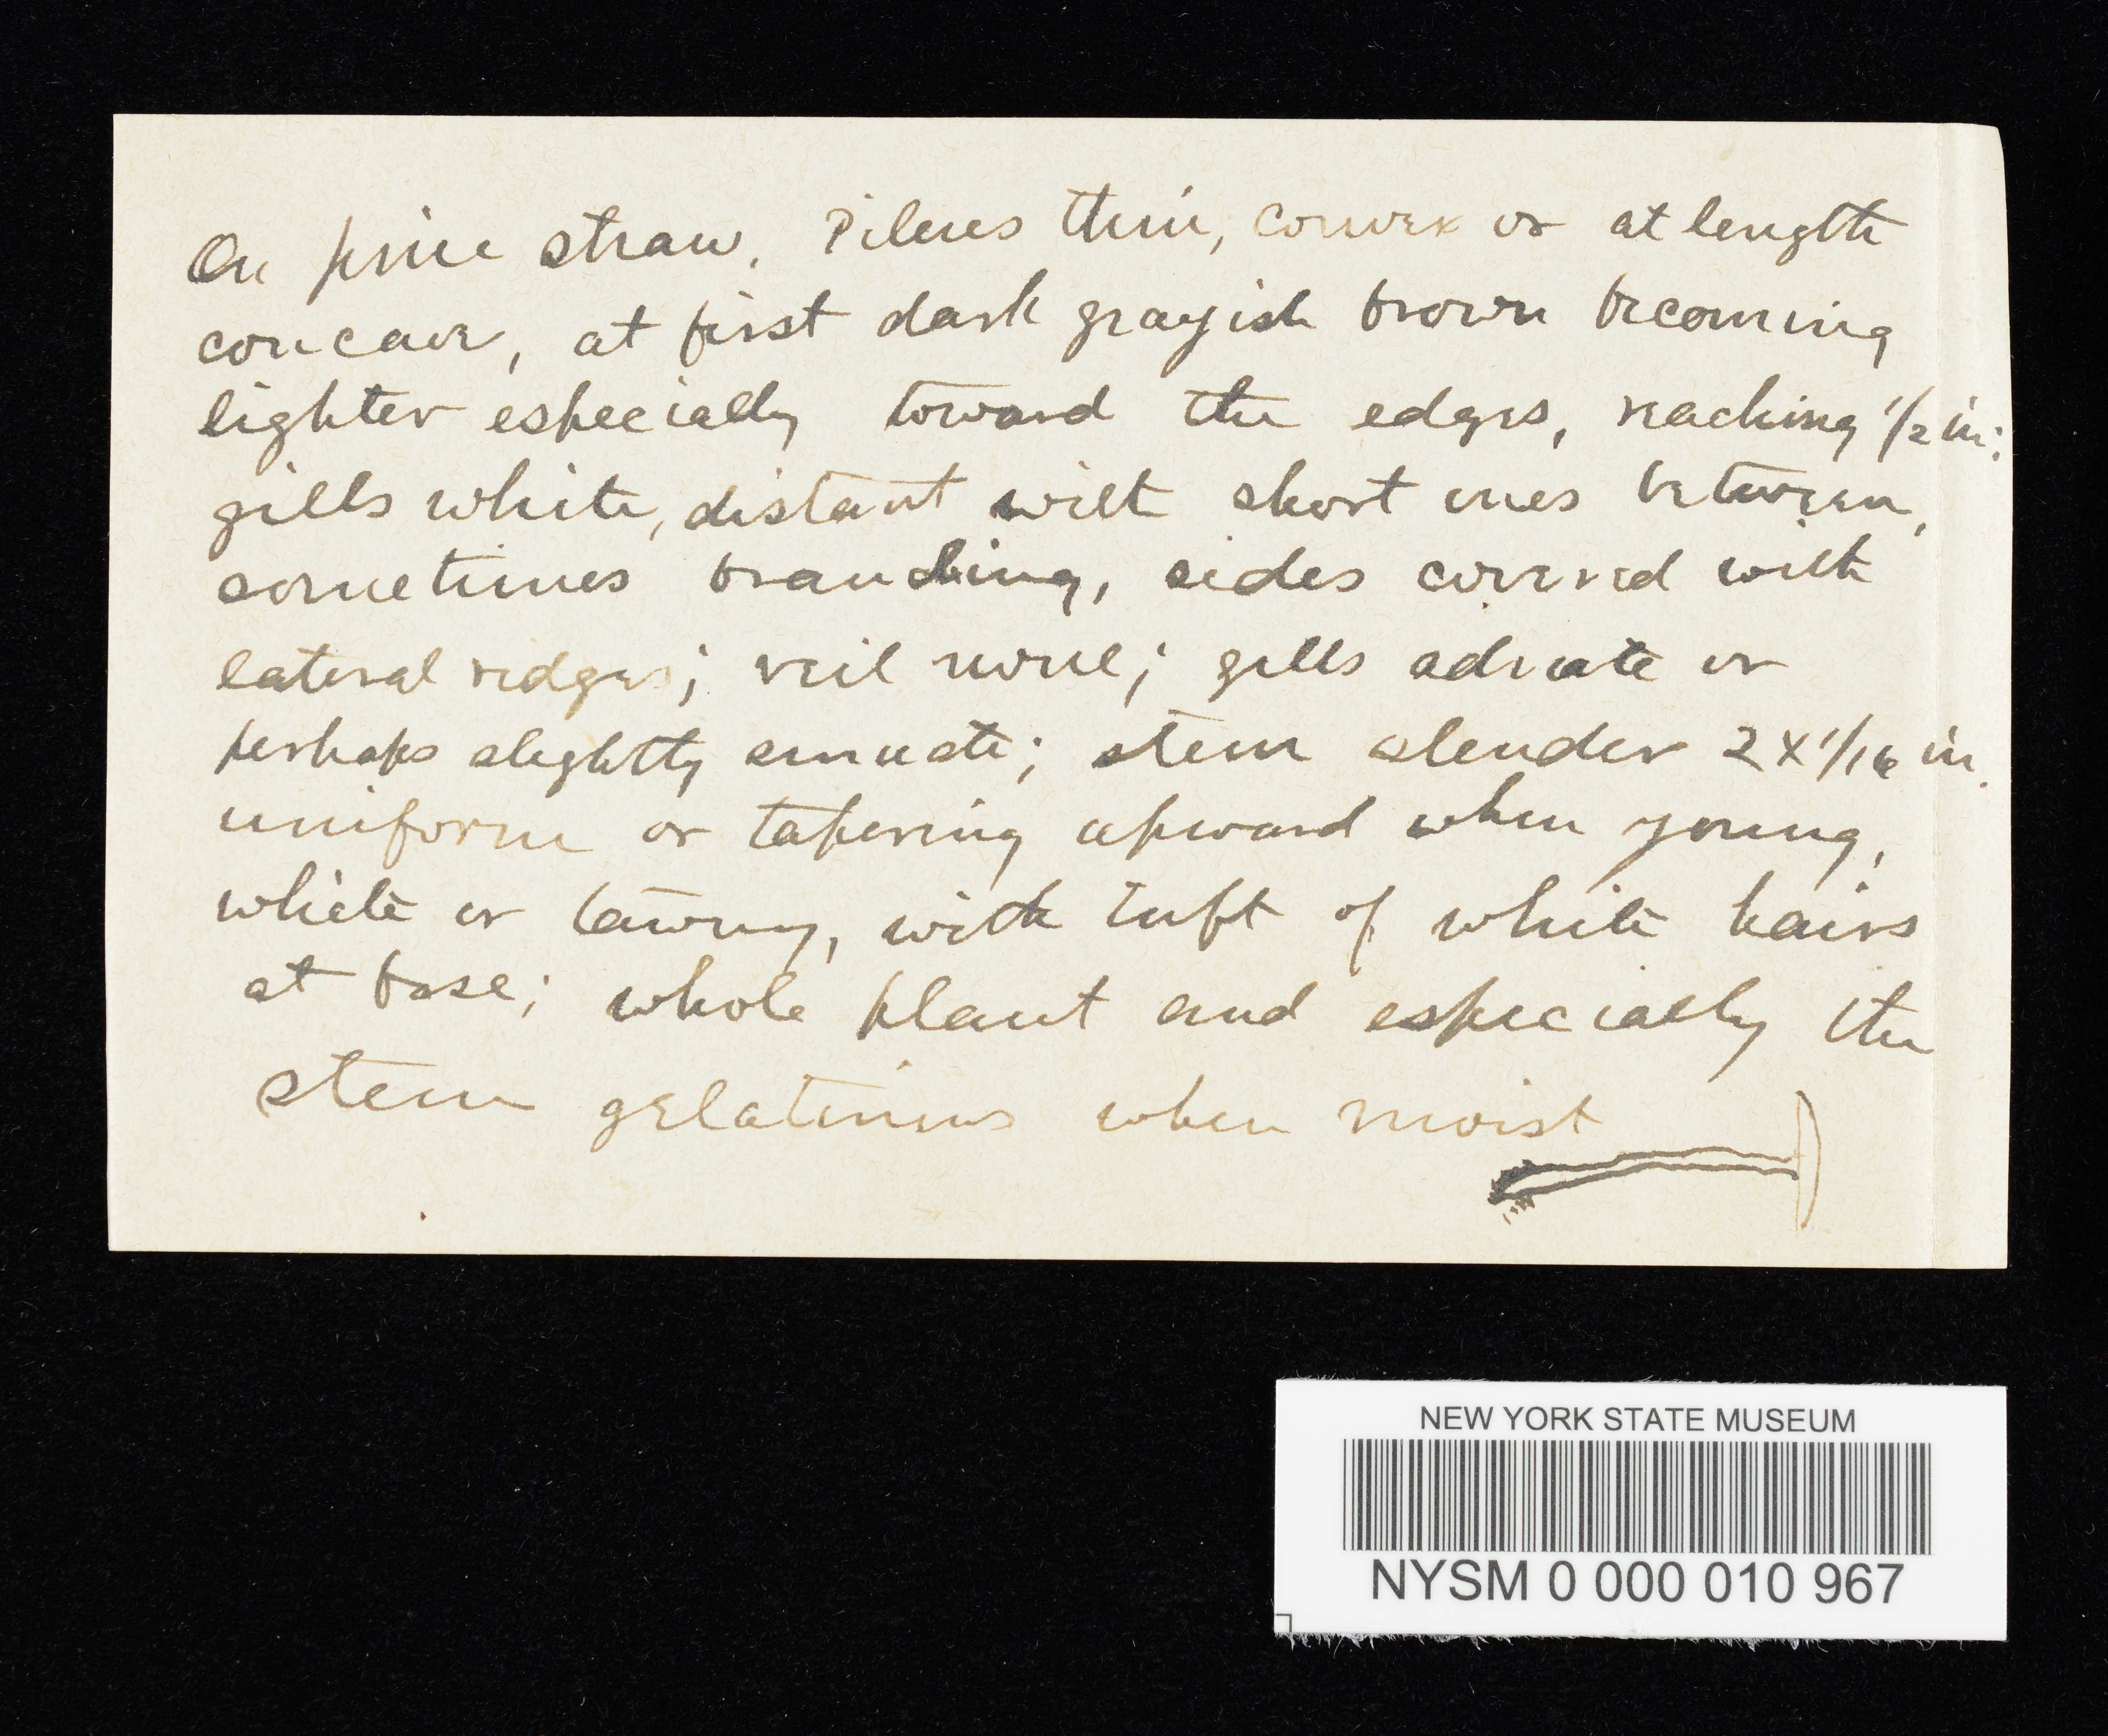 On pine straw. Pileus thin, convex or at length
concave, at first dark grayish brown becoming
lighter especially toward the edges, reaching 1/2 in;
gills white, distant with short ones between,
sometimes branching, sides covered with
lateral ridges; veil none; gills adnate or
perhaps slightly sinuate; stem slender 2 x 1/16 in.
uniform or tapering upward when young,
white or tawny, with tuft of white hairs
at base; whole plant and especially the
stem gelatinous when moist
NEW YORK STATE MUSEUM
NYSM 0 000 010 967